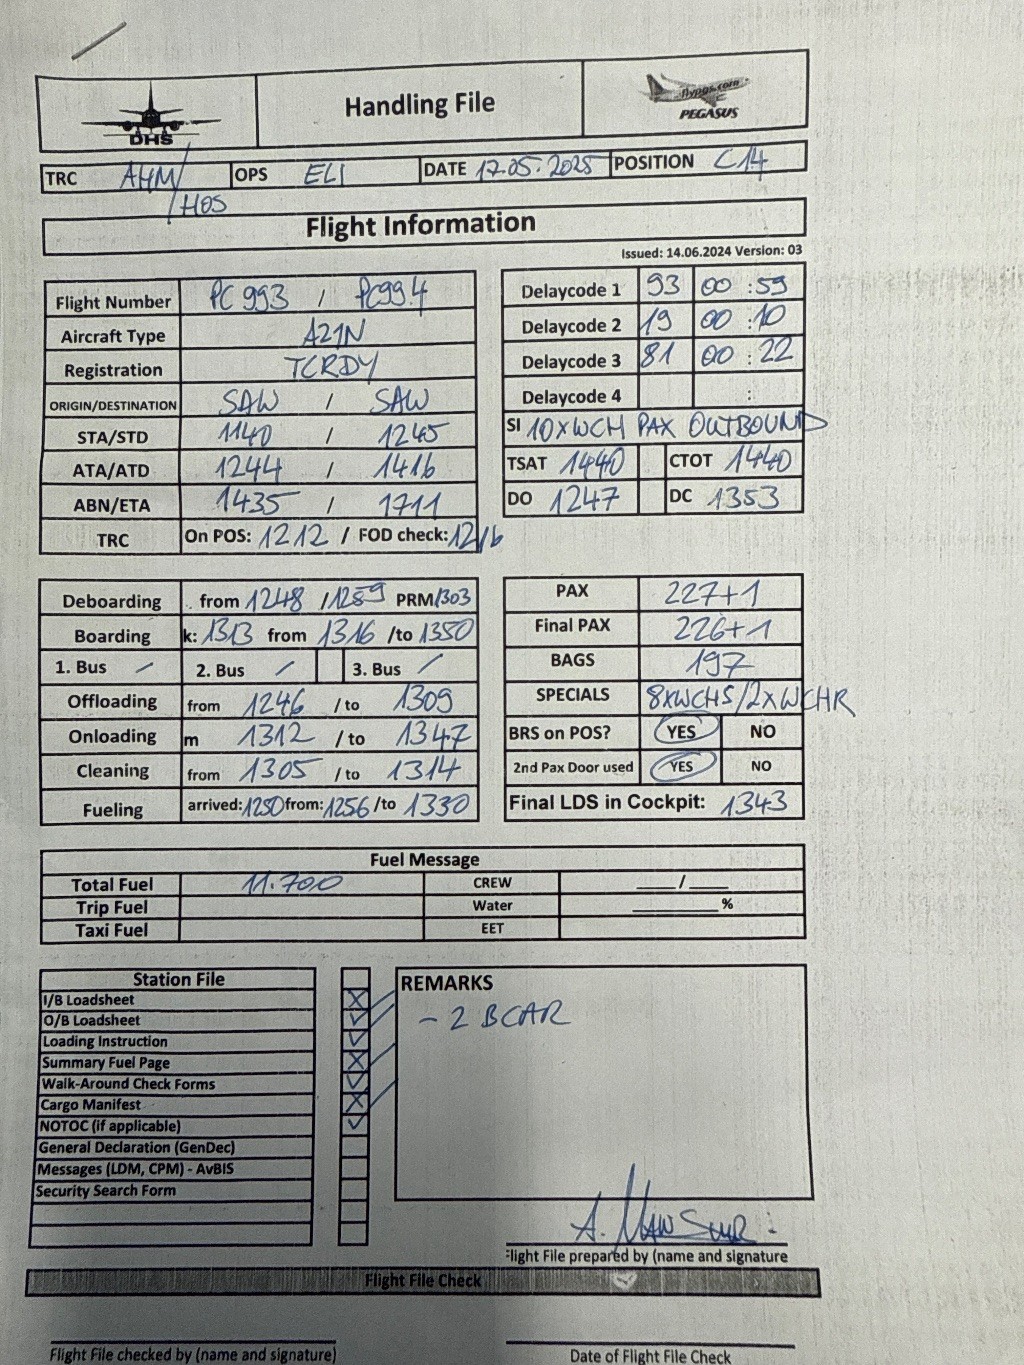 DHS
Handling File
flypgs.com
PEGASUS
TRC AHM/HOS OPS ELI DATE 17.05.2025 POSITION C14
Flight Information
Issued: 14.06.2024 Version: 03
Flight Number PC 993 / PC994
Aircraft Type A21N
Registration TCRDY
ORIGIN/DESTINATION SAW / SAW
STA/STD 1140 / 1245
ATA/ATD 1244 / 1416
ABN/ETA 1435 / 1711
TRC On POS: 1212 / FOD check: 1216
Delaycode 1 93 00 : 59
Delaycode 2 19 00 : 10
Delaycode 3 81 00 : 22
Delaycode 4 :
SI 10xWCH PAX OUTBOUND
TSAT 1440 CTOT 1440
DO 1247 DC 1353
Deboarding from 1248 / 1259 PRM/1303
Boarding k: 1313 from 1316 /to 1350
1. Bus / 2. Bus / 3. Bus /
Offloading from 1246 / to 1309
Onloading m 1312 / to 1347
Cleaning from 1305 / to 1314
Fueling arrived: 1250 from: 1256 /to 1330
PAX 227+1
Final PAX 226+1
BAGS 197
SPECIALS 8xWCHS/2xWCHR
BRS on POS? YES NO
2nd Pax Door used YES NO
Final LDS in Cockpit: 1343
Fuel Message
Total Fuel 11.700 CREW ____/____
Trip Fuel Water ________%
Taxi Fuel EET
Station File
I/B Loadsheet
O/B Loadsheet
Loading Instruction
Summary Fuel Page
Walk-Around Check Forms
Cargo Manifest
NOTOC (if applicable)
General Declaration (GenDec)
Messages (LDM, CPM) - AvBIS
Security Search Form
REMARKS
- 2 BCAR
A. Mansur
Flight File prepared by (name and signature
Flight File Check
Flight File checked by (name and signature)
Date of Flight File Check